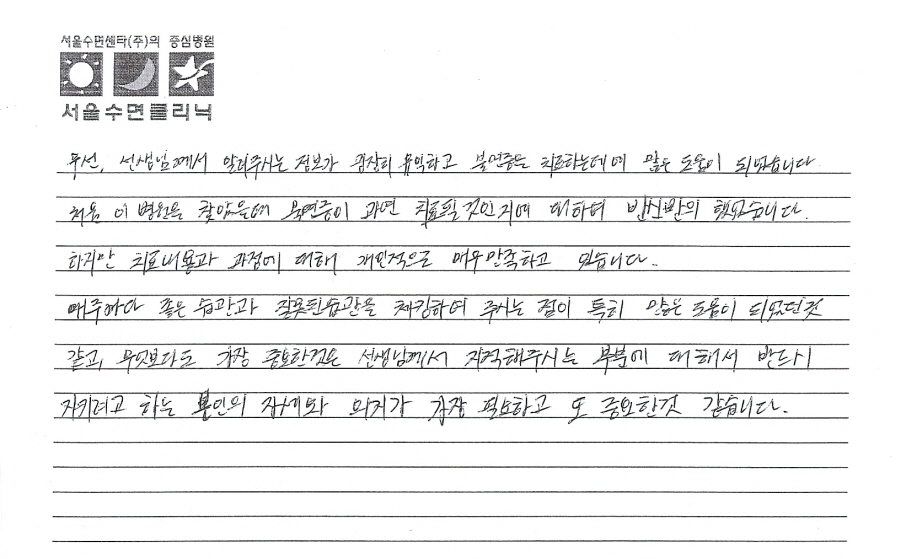 서울수면센타(주)의 중심병원
서울수면클리닉
우선, 선생님께서 알려주시는 정보가 굉장히 유익하고 불면증을 치료하는데에 많은 도움이 되었습니다.
처음 이 병원을 찾았을때 불면증이 과연 치료될 것인지에 대하여 반신반의 했었습니다.
하지만 치료내용과 과정에 대해 개인적으로 매우만족하고 있습니다.
매주마다 좋은 습관과 잘못된습관을 체킹하여 주시는 점이 특히 많은 도움이 되었던것
같고, 무엇보다도 가장 중요한것은 선생님께서 지적해주시는 부분에 대해서 반드시
지키려고 하는 본인의 자세와 의지가 가장 필요하고 또 중요한것 같습니다.